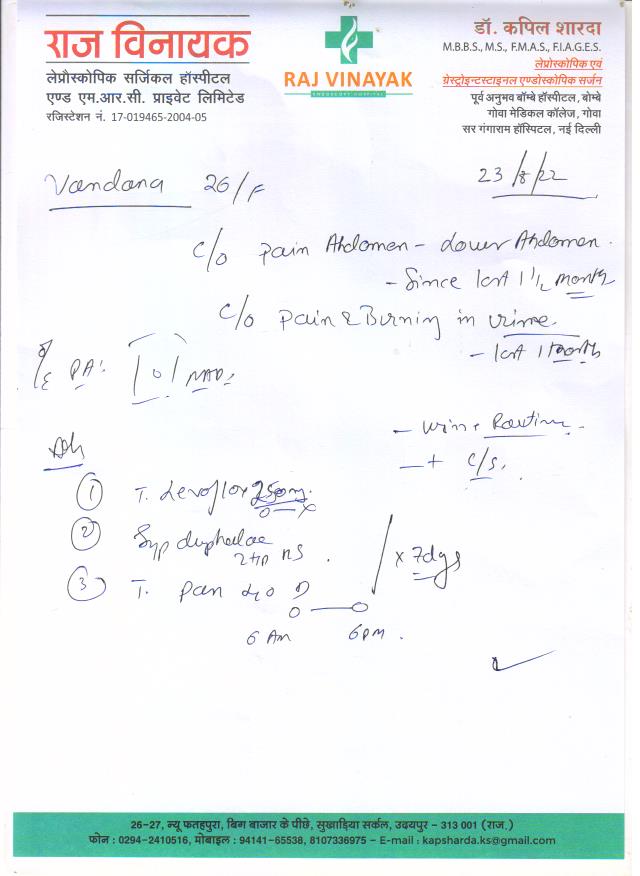 राज विनायक
लेप्रौस्कोपिक सर्जिकल हॉस्पीटल
एण्ड एम.आर.सी. प्राइवेट लिमिटेड
रजिस्टेशन नं. 17-019465-2004-05
RAJ VINAYAK
ENDOSCOPY HOSPITAL
डॉ. कपिल शारदा
M.B.B.S., M.S., F.M.A.S., F.I.A.G.E.S.
लेप्रोस्कोपिक एवं
ग्रेस्ट्रोइन्टस्टाइनल एण्डोस्कोपिक सर्जन
पूर्व अनुभव बॉम्बे हॉस्पीटल, बोम्बे
गोवा मेडिकल कॉलेज, गोवा
सर गंगाराम हॉस्पिटल, नई दिल्ली
Vandana 26/F
23/8/22
c/o Pain Abdomen - Lower Abdomen.
- Since last 1 1/2 month
c/o Pain & Burning in urine.
- last 1 month
O/E PA: NAD
- Urine Routine
- + C/S.
Adv
① T. Levoflox 250mg
0 - x
② Syp duphalac
2 tsp HS.
x 7 dys
③ T. Pan 40 D
0 — 0
6 AM 6 PM.
26-27, न्यू फतहपुरा, बिग बाजार के पीछे, सुखाड़िया सर्कल, उदयपुर - 313 001 (राज.)
फोन : 0294-2410516, मोबाइल : 94141-65538, 8107336975 - E-mail : kapsharda.ks@gmail.com